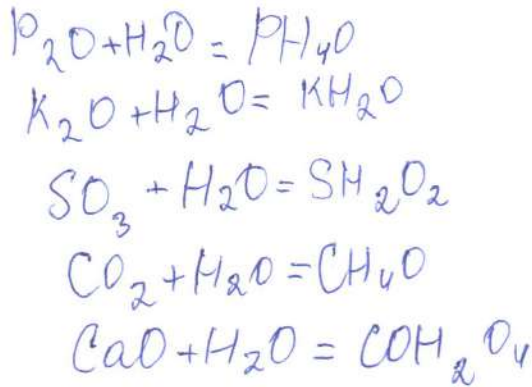 P₂O+H₂O= PH₄O
K₂O+H₂O= KH₂O
SO₃+H₂O=SH₂O₂
CO₂+H₂O=CH₄O
CaO+H₂O= COH₂O₄